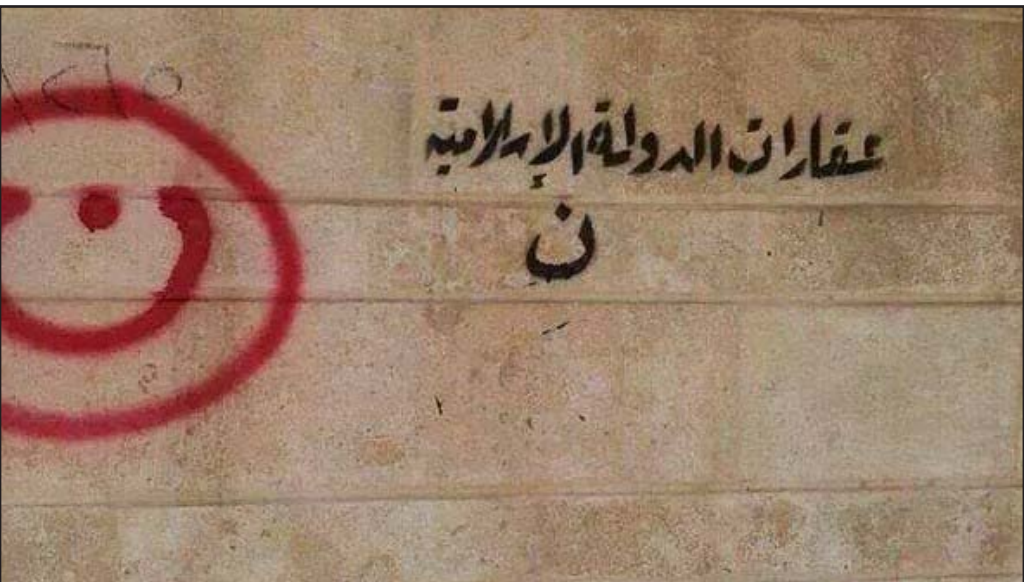 عقارات الدولة الإسلامية
ن
ن